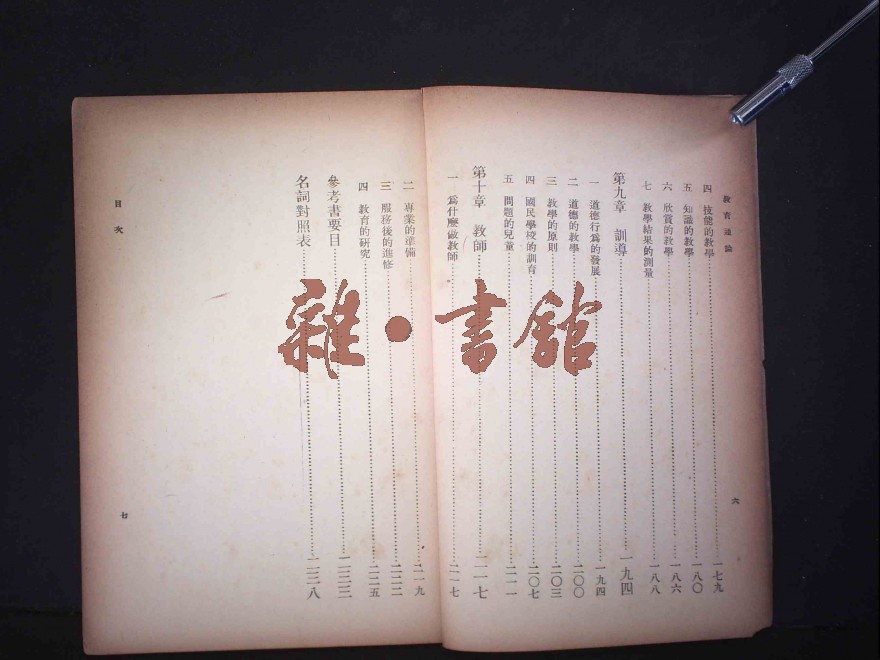 教育通論
四 技能的教學 一七九
五 知識的教學 一八〇
六 欣賞的教學 一八六
七 教學結果的測量 一八八
第九章 訓導 一九四
一 道德行爲的發展 一九四
二 道德的教學 二〇〇
三 教學的原則 二〇三
四 國民學校的訓育 二〇七
五 問題的兒童 二一一
第十章 教師 二一七
一 爲什麼做教師 二一七
六
二 專業的準備 二一九
三 服務後的進修 二二二
四 教育的研究 二二五
參考書要目 二三三
名詞對照表 二三八
目次
七
雜·書館